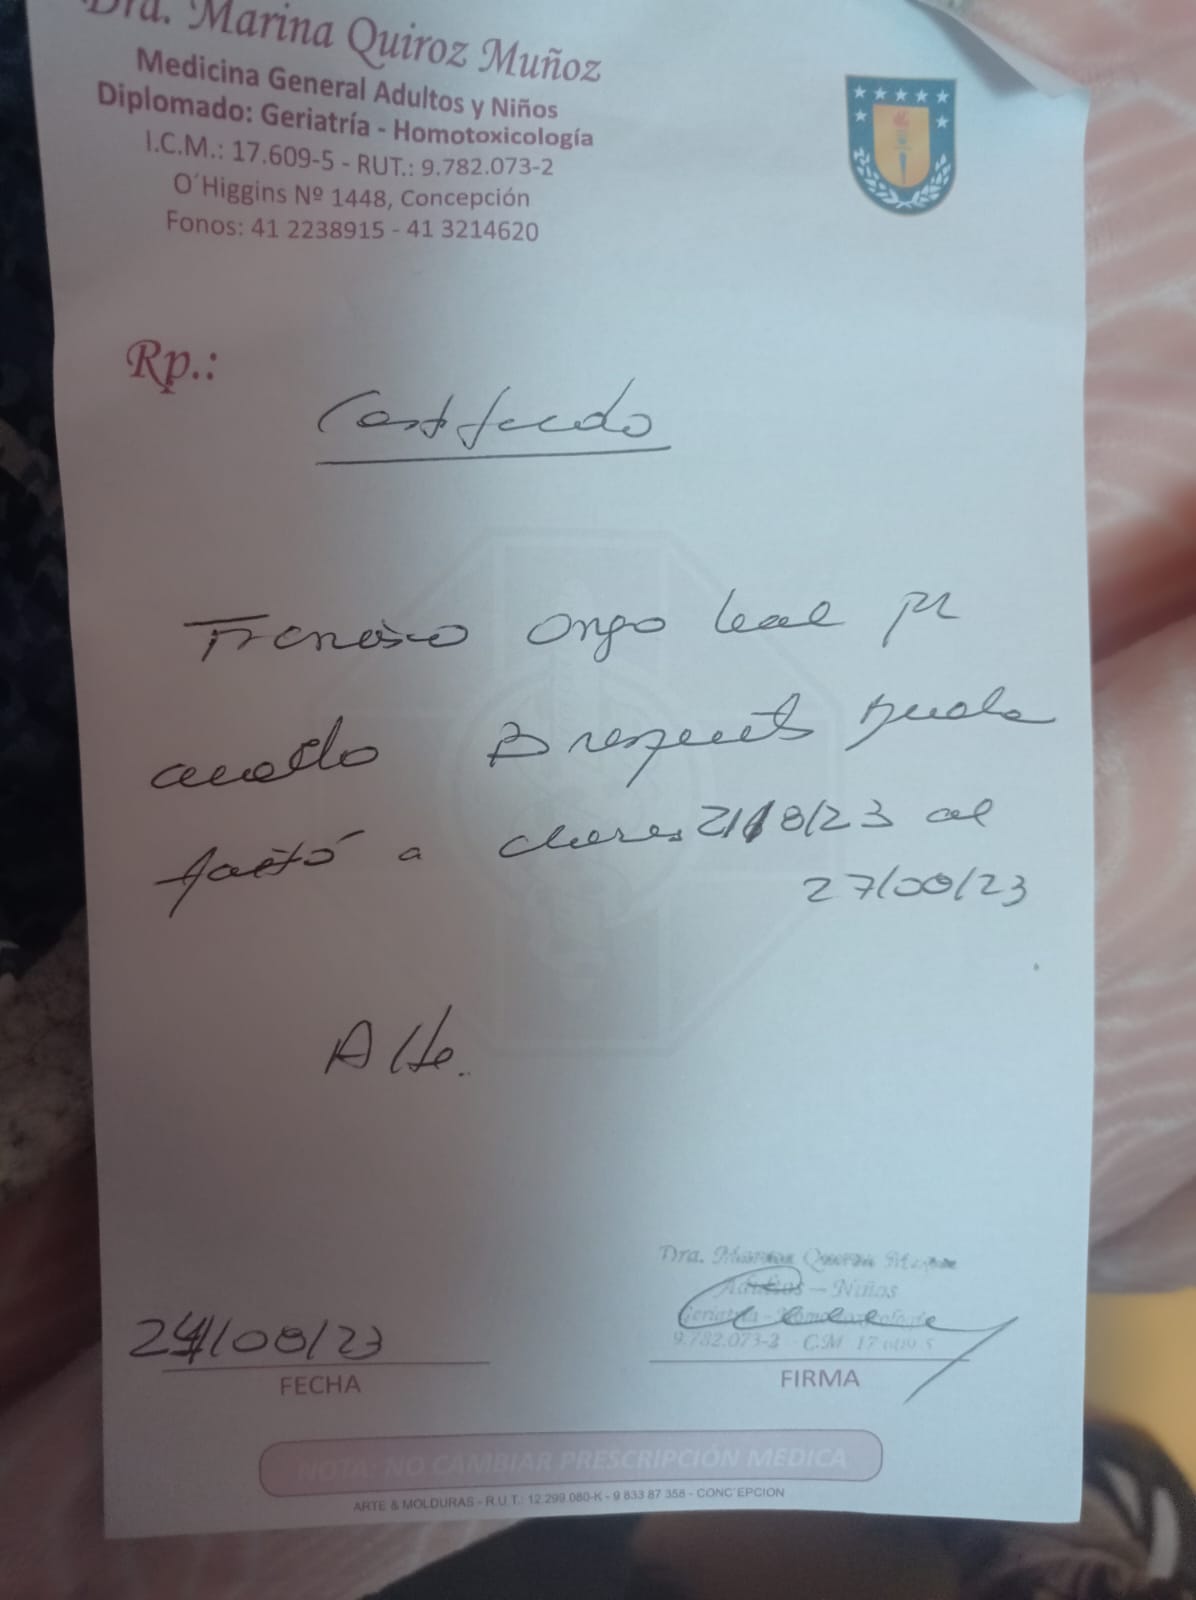 Dra. Marina Quiroz Muñoz
Medicina General Adultos y Niños
Diplomado: Geriatría - Homotoxicología
I.C.M.: 17.609-5 - RUT.: 9.782.073-2
O´Higgins Nº 1448, Concepción
Fonos: 41 2238915 - 41 3214620
Rp.:
Certificado
Francisco Leal
cuadro
faltó a clases 21/8/23 al
27/08/23
Atte.
24/08/23
FECHA
Dra. Marina Quiroz
Adultos - Niños
9.782.073-2
FIRMA
NOTA: NO CAMBIAR PRESCRIPCIÓN MEDICA
ARTE & MOLDURAS - R.U.T.: 12.299.080-K - 9 833 87 358 - CONC´EPCION